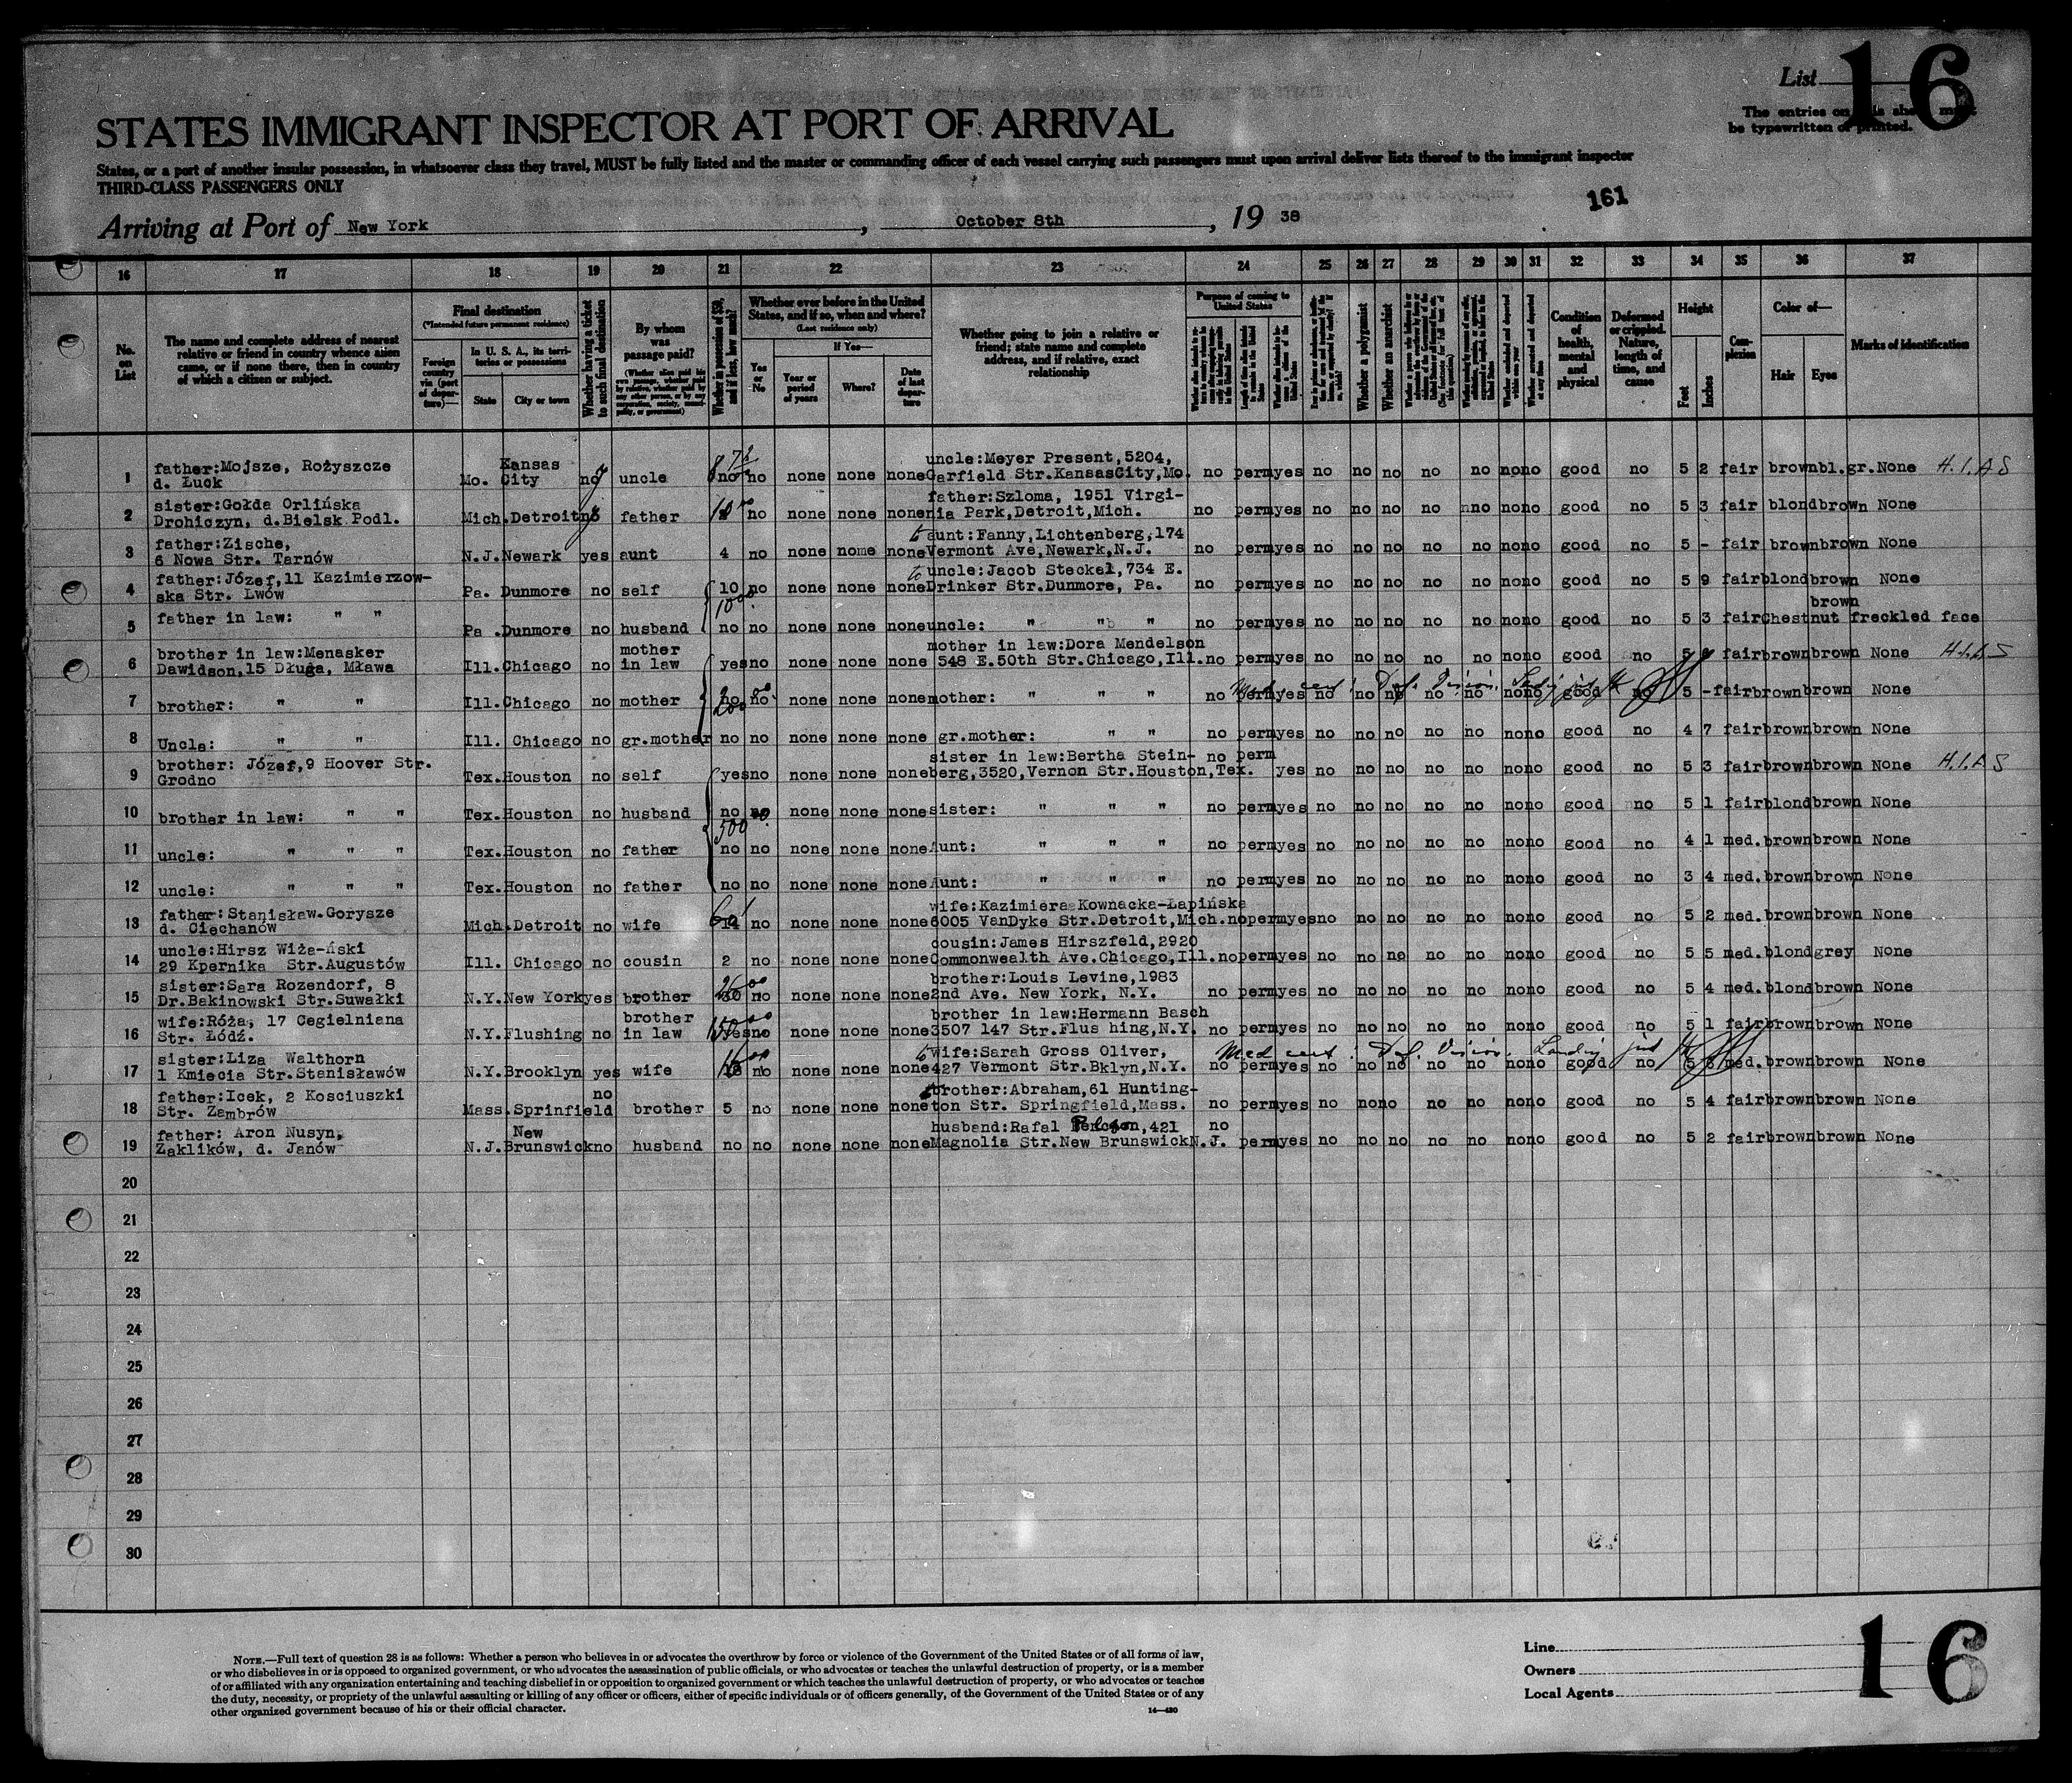 List 16
The entries on this sheet must
be typewritten or printed.
STATES IMMIGRANT INSPECTOR AT PORT OF ARRIVAL
States, or a port of another insular possession, in whatsoever class they travel, MUST be fully listed and the master or commanding officer of each vessel carrying such passengers must upon arrival deliver lists thereof to the immigrant inspector
THIRD-CLASS PASSENGERS ONLY
161
Arriving at Port of New York, October 8th, 19 38
16 17 18 19 20 21 22 23 24 25 26 27 28 29 30 31 32 33 34 35 36 37
No. on List
The name and complete address of nearest relative or friend in country whence alien came, or if none there, then in country of which a citizen or subject.
Final destination
(*Intended future permanent residence)
Foreign country via (port of departure)—
In U. S. A., its territories or possessions
State
City or town
Whether having a ticket to such final destination
By whom was passage paid?
(Whether alien paid his own passage, whether paid by relative, whether paid by any other person, or by any corporation, society, municipality, or government)
Whether in possession of $50, and if less, how much?
Whether ever before in the United States, and if so, when and where?
(Last residence only)
Yes or No
If Yes—
Year or period of years
Where?
Date of last departure
Whether going to join a relative or friend; state name and complete address, and if relative, exact relationship
Purpose of coming to United States
Whether a polygamist
Whether an anarchist
Condition of health, mental and physical
Deformed or crippled. Nature, length of time, and cause
Height
Feet
Inches
Complexion
Color of—
Hair
Eyes
Marks of identification
1 father:Mojsze, Rożyszcze d. Łuck Mo. Kansas City no uncle no no none none none uncle:Meyer Present,5204, Garfield Str.KansasCity,Mo. no perm yes no no no no no no no good no 5 2 fair brown bl.gr. None H.I.A S
2 sister:Gołda Orlińska Drohiczyn, d.Bielsk Podl. Mich. Detroit no father no none none none father:Szloma, 1951 Virginia Park,Detroit,Mich. no perm yes no no no no no no no good no 5 3 fair blond brown None
3 father:Zische, 6 Nowa Str. Tarnów N.J. Newark yes aunt 4 no none nome none to aunt:Fanny,Lichtenberg,174 Vermont Ave,Newark,N.J. no perm yes no no no no no no no good no 5 - fair brown brown None
4 father:Józef,11 Kazimierzowska Str. Lwów Pa. Dunmore no self 10 no none none none to uncle:Jacob Steckel,734 E. Drinker Str.Dunmore, Pa. no perm yes no no no no no no no good no 5 9 fair blond brown None
5 father in law: " " Pa. Dunmore no husband no no none none none uncle: " " " no perm yes no no no no no no no good no 5 3 fair Chestnut brown freckled face
6 brother in law:Menasker Dawidson,15 Długa, Mława Ill. Chicago no mother in law yes no none none none mother in law:Dora Mendelson 548 E.50th Str.Chicago,Ill. no perm yes no no no no no no no good no 5 fair brown brown None
7 brother: " " Ill. Chicago no mother no no none none none mother: " " " no perm yes no no no no no no no good no 5 - fair brown brown None
8 Uncle: " " Ill. Chicago no gr.mother no no none none none gr.mother: " " no perm yes no no no no no no no good no 4 7 fair brown brown None
9 brother: Józef,9 Hoover Str. Grodno Tex. Houston no self yes no none none none sister in law:Bertha Steinberg,3520,Vernon Str.Houston,Tex. no perm yes no no no no no no no good no 5 3 fair brown brown None H.I.A S
10 brother in law: " " Tex. Houston no husband no no none none none sister: " " " no perm yes no no no no no no no good no 5 1 fair blond brown None
500
11 uncle: " " " Tex. Houston no father no no none none none Aunt: " " " no perm yes no no no no no no no good no 4 1 med. brown brown None
12 uncle: " " " Tex. Houston no father no no none none none Aunt: " " " no perm yes no no no no no no no good no 3 4 med. brown brown None
13 father:Stanisław.Gorysze d. Ciechanów Mich. Detroit no wife no none none none wife:Kazimiera Kownacka-Łapińska 6005 VanDyke Str.Detroit,Mich. no perm yes no no no no no no no good no 5 2 med. brown brown None
14 uncle:Hirsz Wiża-ński 29 Kpernika Str.Augustów Ill. Chicago no cousin 2 no none none none cousin:James Hirszfeld,2920 Commonwealth Ave.Chicago,Ill. no perm yes no no no no no no no good no 5 5 med. blond grey None
15 sister:Sara Rozendorf, 8 Dr.Bakinowski Str.Suwałki N.Y. New York yes brother no none none none brother:Louis Levine,1983 2nd Ave. New York, N.Y. no perm yes no no no no no no no good no 5 4 med. blond brown None
16 wife:Róża, 17 Cegielniana Str. Łódź. N.Y. Flushing no brother in law yes no none none none brother in law:Hermann Basch 3507 147 Str.Flus hing,N.Y. no perm yes no no no no no no no good no 5 1 fair brown brown None
Med cert: Def. Vision.
17 sister:Liza Walthorn 1 Kmiecia Str.Stanisławów N.Y. Brooklyn yes wife no none none none to wife:Sarah Gross Oliver, 427 Vermont Str.Bklyn,N.Y. no perm yes no no no no no no no good no 5 med. brown brown None
18 father:Icek, 2 Kosciuszki Str. Zambrów Mass. Sprinfield no brother 5 no none none none brother:Abraham,61 Huntington Str. Springfield,Mass. no perm yes no no no no no no no good no 5 4 fair brown brown None
19 father: Aron Nusyn, Zaklików, d. Janów N.J. New Brunswick no husband no no none none none husband:Rafal ,421 Magnolia Str.New Brunswick N.J. no perm yes no no no no no no no good no 5 2 fair brown brown None
20
21
22
23
24
25
26
27
28
29
30
NOTE.—Full text of question 28 is as follows: Whether a person who believes in or advocates the overthrow by force or violence of the Government of the United States or of all forms of law,
or who disbelieves in or is opposed to organized government, or who advocates the assassination of public officials, or who advocates or teaches the unlawful destruction of property, or is a member
of or affiliated with any organization entertaining and teaching disbelief in or opposition to organized government or which teaches the unlawful destruction of property, or who advocates or teaches
the duty, necessity, or propriety of the unlawful assaulting or killing of any officer or officers, either of specific individuals or of officers generally, of the Government of the United States or of any
other organized government because of his or their official character.
14—430
Line
Owners
Local Agents
16